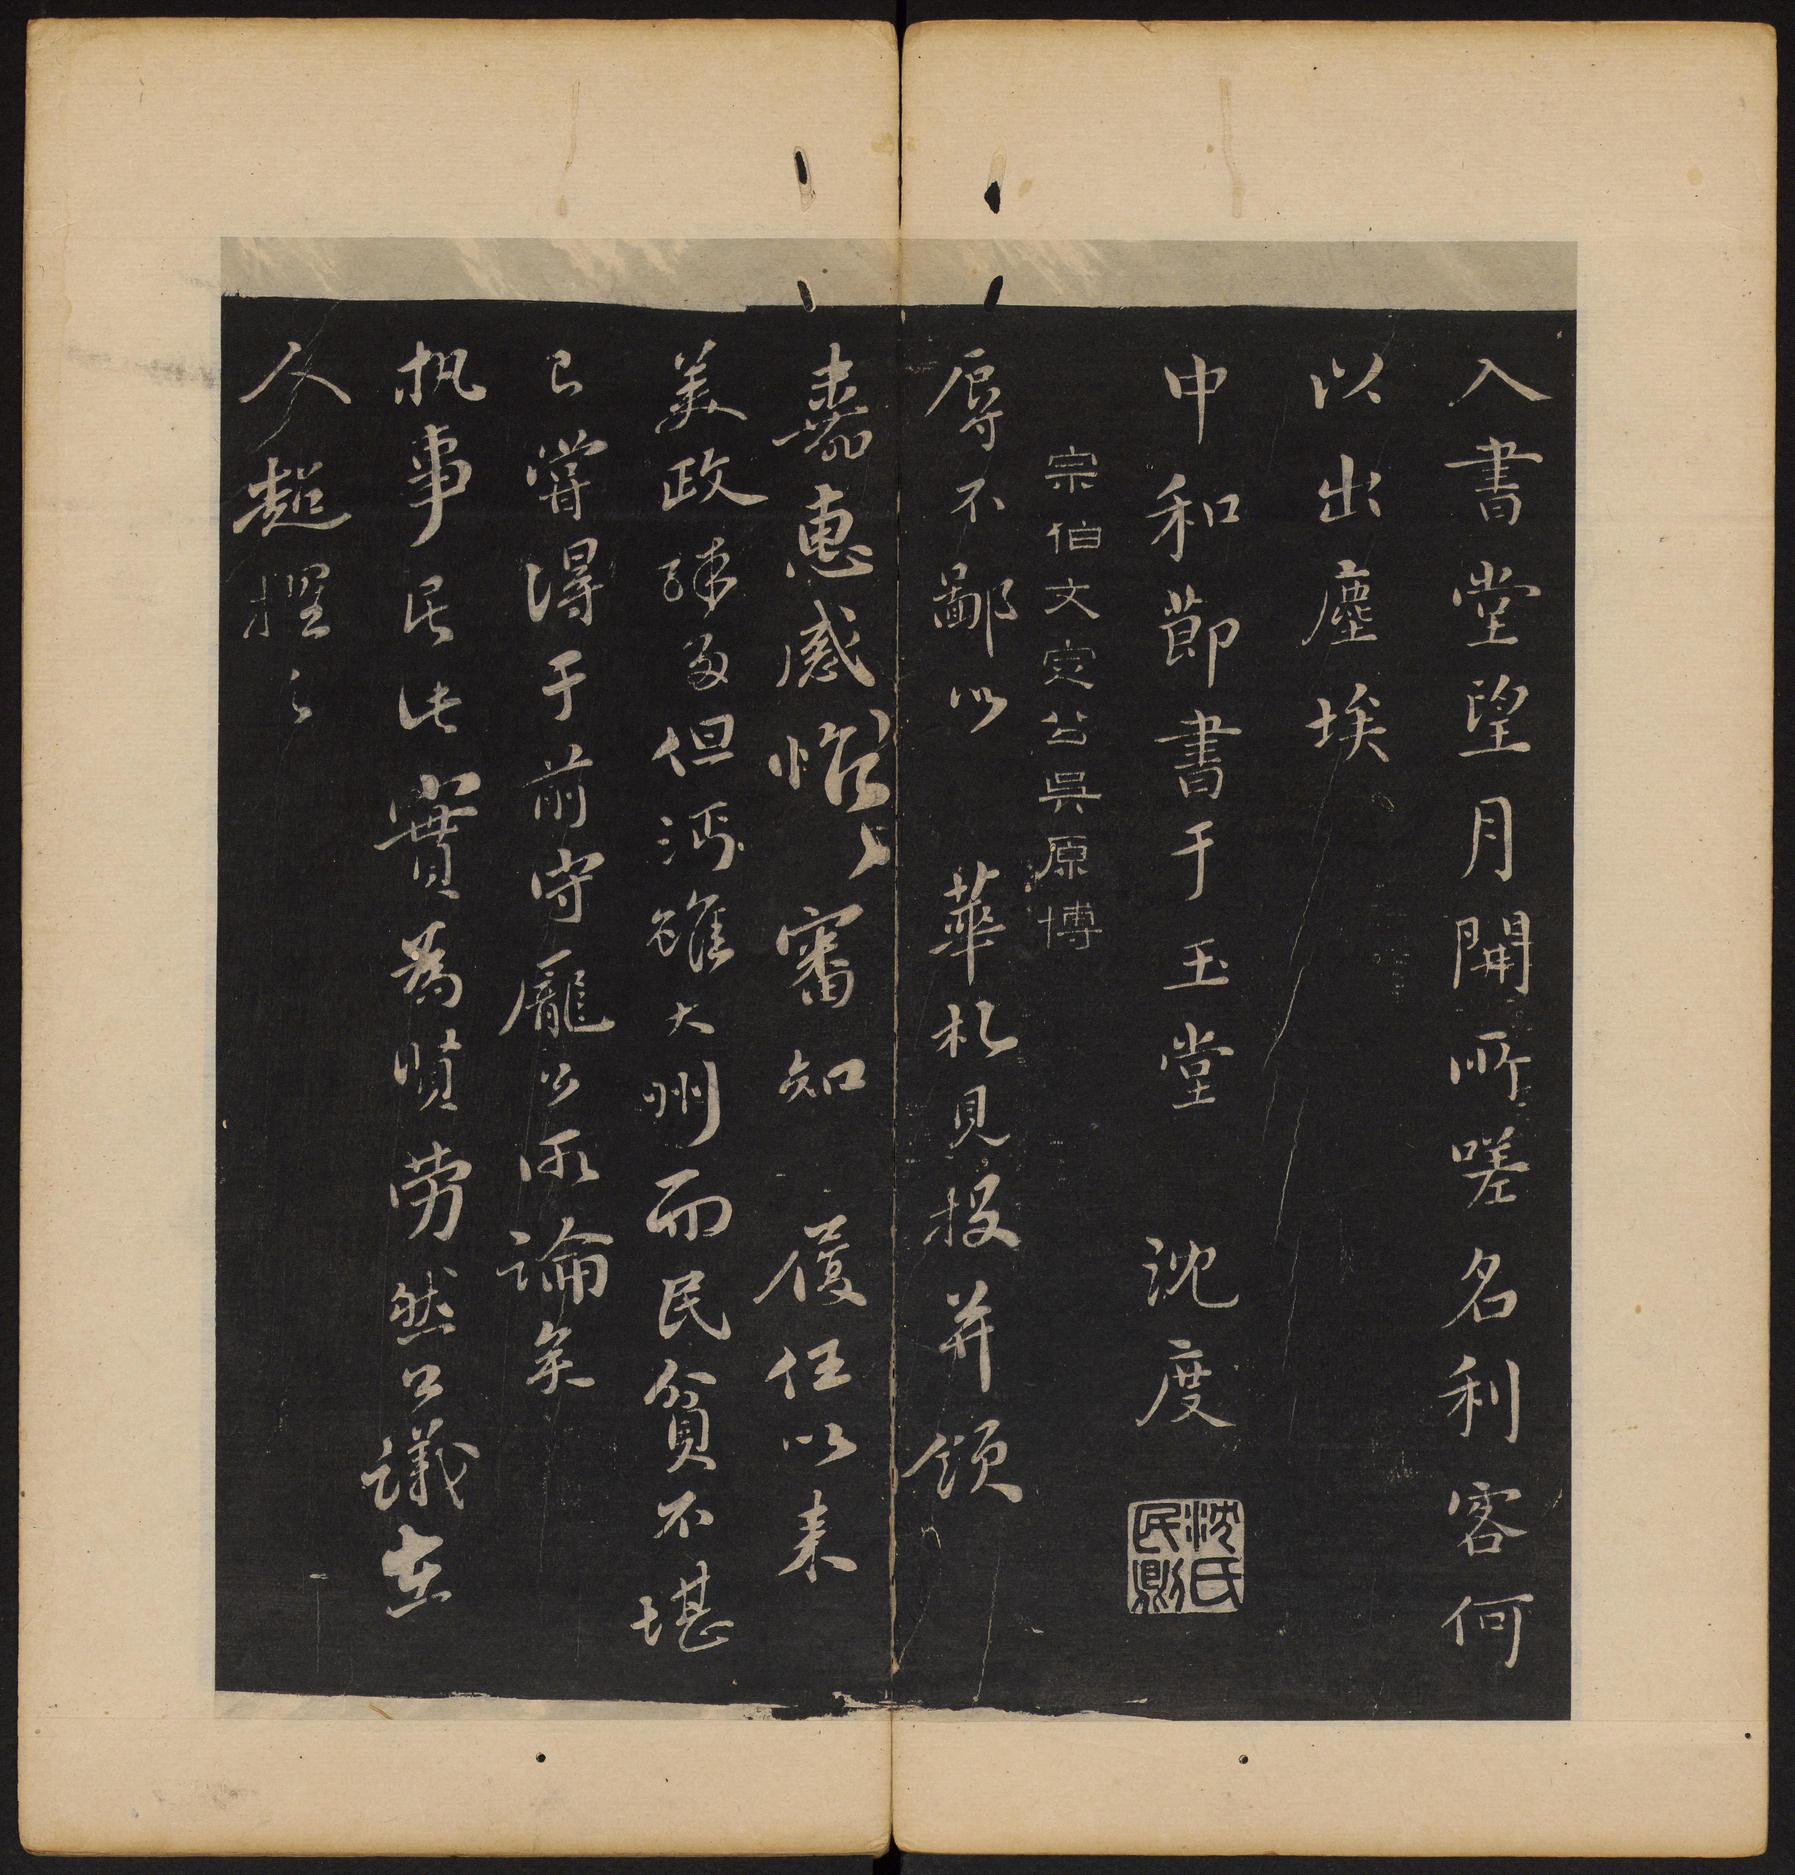 入書堂望月開所嗟名利客何
以出塵埃
中和節書于玉堂 沈度
沈氏民則
宗伯文定公吳原博
辱不鄙以 華札見投并領
嘉惠感愧〻審知 履任以來
美政殊多但沔雖大州而民貧不堪
已嘗得于前守龐公所論矣
執事居此實為煩勞然公議在
人超擢〻